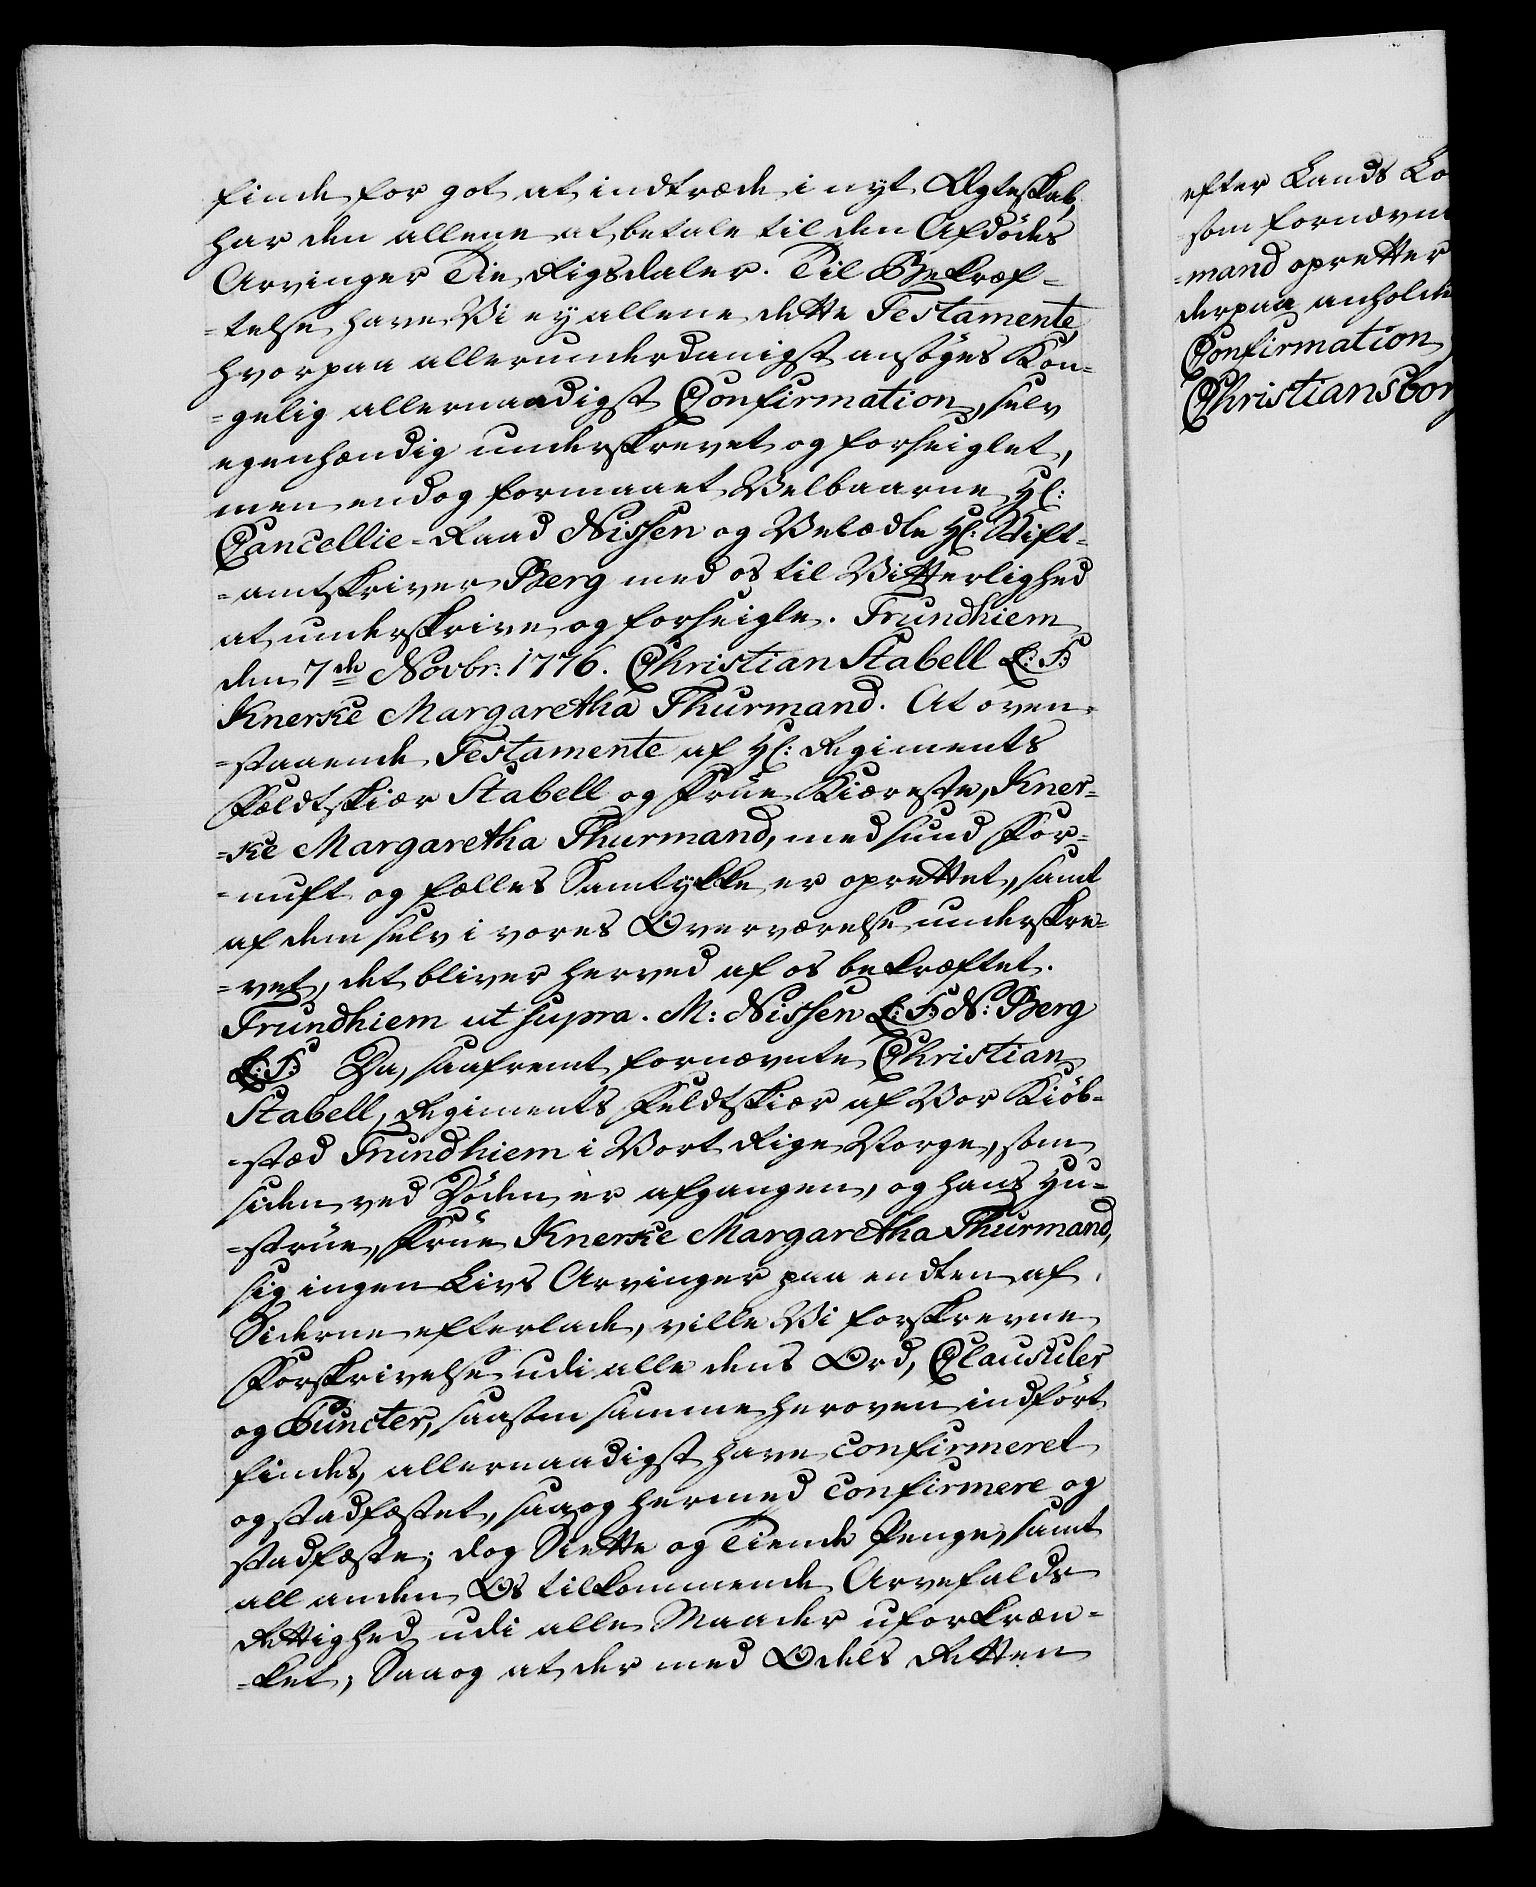 finde for got at indtræde i nyt Ægteskab,
har den allene at betale til den Afdødes
Arvinger Tie Rigsdaler. Til Bekræf-
-telse have Vi ey allene dette Testamente,
hvorpaa allerunderdanigst ansøges Kon-
-gelig allernaadigst Confirmation, selv
egenhændig underskrevet og forseiglet,
men endog formaaet Velbaarne Hr:
Cancellie-Raad Nissen og Velædle Hr: Stift-
-amtskriver Berg med os til Vitterlighed
at underskrive og forseigle. Trundhiem
den 7de Novbr: 1776. Christian Stabell L:S:
Knerske Margaretha Thurmand. At oven-
-staaende Testamente af Hr: Regiments
Feldtskiær Stabell og Frue Kiæreste, Kner-
-ske Margaretha Thurmand, med sund For-
-nuft og fælles Samtykke er oprettet, samt
af dem selv i vores Overværelse underskre-
-vet, det bliver herved af os bekræftet.
Trundhiem ut supra. M: Nissen L:S: N: Berg
L:S: Da, saafremt fornævnte Christian
Stabell, Regiments Feldtskiær af Vor Kiøb-
-stæd Trundhiem i Vort Rige Norge, som
siden ved Døden er afgangen, og hans Hu-
-strue, Frue Knerske Margaretha Thurmand,
sig ingen Livs Arvinger paa endten af
Siderne efterlade, ville Vi forskrevne
Forskrivelse udi alle dens Ord, Clausuler
og Puncter, saasom samme heroven indført
findes, allernaadigst have confirmeret
og stadfæstet, saa og hermed confirmere og
stadfæste; dog Siette og Tiende Penge, samt
all anden Os tilkommende Arvefalds
Rettighed udi alle Maader uforkræn-
-ket, Saa og at der med Odels Retten
efter Lands Lo
som fornævn
-mand opretter
derpaa anholde
Confirmation
Christiansbor